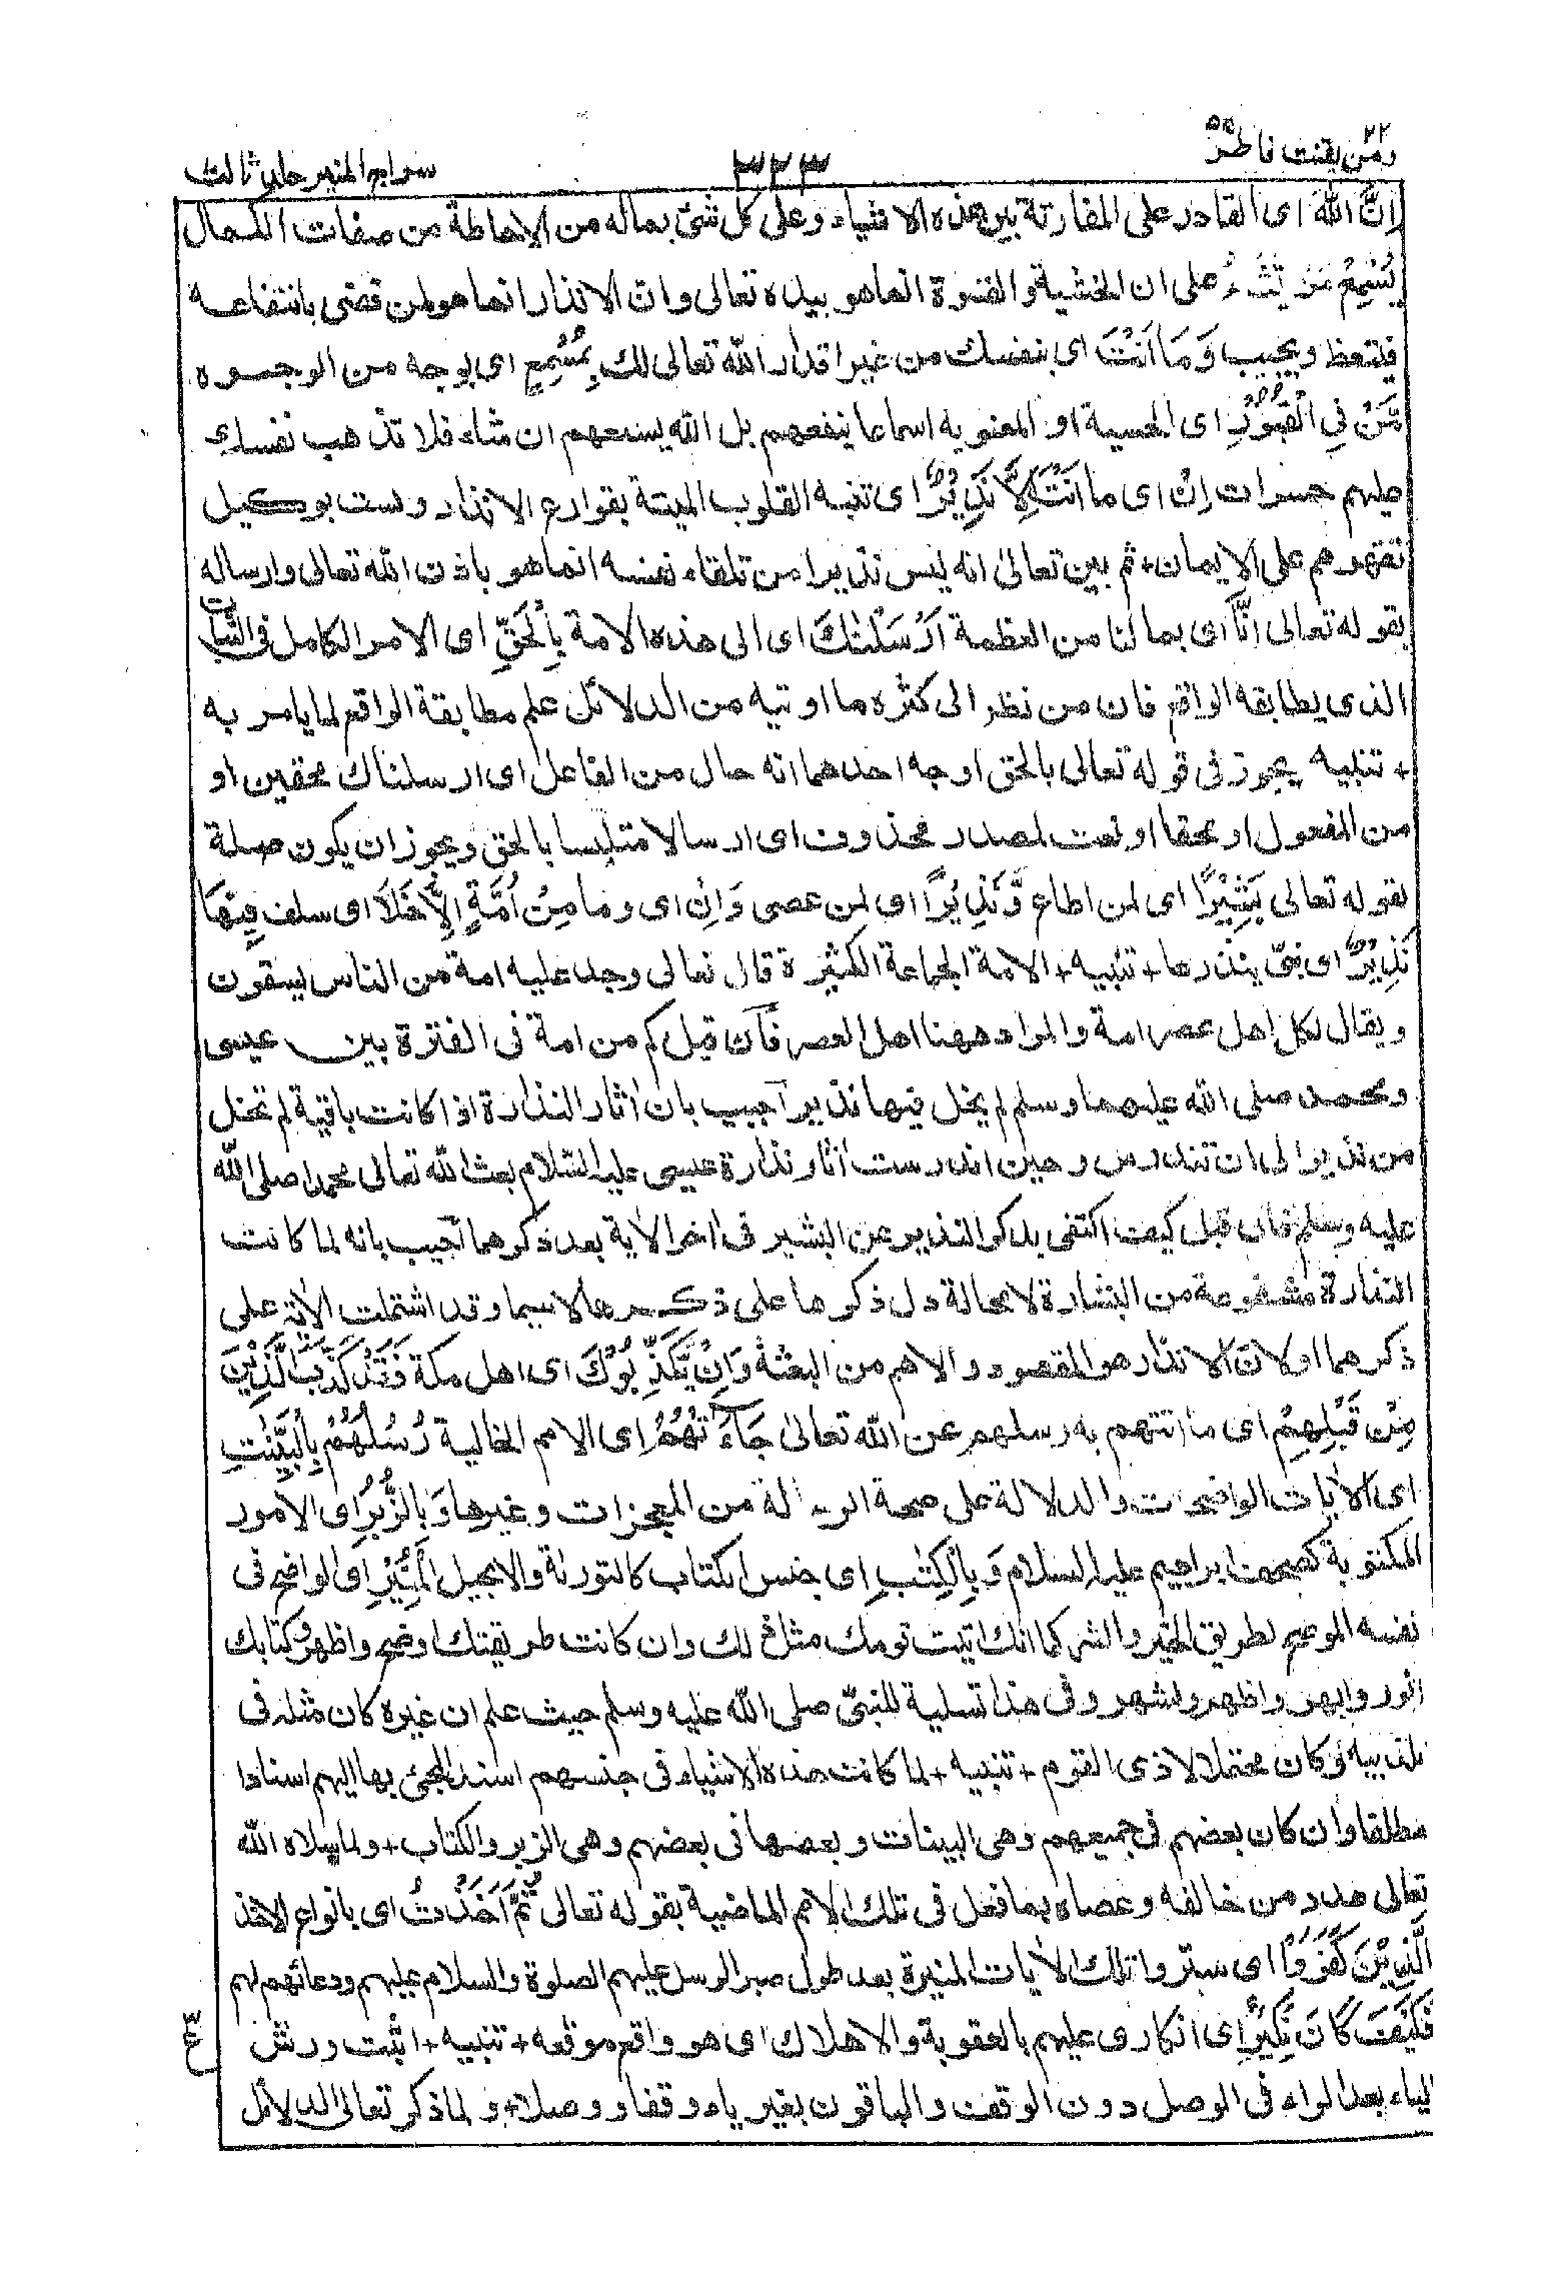 ومن یقنت ۲۲ فاطر ۳۵
۳۲۳
سراج المنیر جلد ثالث
اِنَّ اللّٰهَ ای القادر علی المفارتة بین هذه الاشیاء وعلی کل شیٔ بماله من الاحاطة من صفات الکمال
یُسْمِعُ مَنْ یَّشَآءُ علی ان الخشیة والقسوة انما هو بیده تعالی وان الانذار انما هو لمن قضی بانتفاعه
فیتعظ ویجیب وَمَا اَنْتَ ای بنفسک من غیر اقدار الله تعالی لک بِمُسْمِعٍ ای بوجه من الوجوه
مَّنْ فِی الْقُبُوْرِ ای الحسیة او المعنویه اسماعا ینفعهم بل الله یسمعهم ان شاء فلا تذهب نفسک
علیهم حسرات اِنْ ای ما اَنْتَ اِلَّا نَذِیْرٌ ای تنبه القلوب المیتة بقوارع الانذار ولست بوکیل
تقهرهم علی الایمان+ ثم بین تعالیٰ انه لیس نذیرا من تلقاء نفسه انما هو باذن الله تعالی وارساله
بقوله تعالی اِنَّا ای بما لنا من العظمة اَرْسَلْنٰكَ ای الی هذه الامة بِالْحَقِّ ای الامر الکامل فی الثبات
الذی یطابقه الواقع فان من نظر الی کثره ما اوتیه من الدلائل علم مطابقة الواقع لما یامر به
+ تنبیه یجوز فی قوله تعالی بالحق اوجه احدهما انه حال من الفاعل ای ارسلناك محقین او
من المفعول او محقا او نعت لمصدر محذوف ای ارسالا متلبسا بالحق ویجوز ان یکون صلة
بقوله تعالی بَشِیْرًا ای لمن اطاع وَّنَذِیْرًا ای لمن عصی وَاِنْ ای وما مِنْ اُمَّةٍ اِلَّا خَلَا ای سلف فِیْهَا
نَذِیْرٌ ای نبیّ ینذرها+ تنبیه+ الامة الجماعة الکثیرة قال تعالی وجد علیه امة من الناس یسقون
ویقال لکل اهل عصر امة والمراد ههنا اهل العصر فان قیل کم من امة فی الفترة بین عیسی
ومحمد صلی الله علیهما وسلم لم یخل فیها نذیر اجیب بان اٰثار النذارة اذا کانت باقیة لم تخل
من نذیر الی ان تندرس وحین اندرست اٰثار نذارة عیسی علیه السّلام بعث الله تعالی محمدا صلی الله
علیه وسلم فان قیل کیف اکتفی بذکر النذیر عن البشیر فی اٰخر الاٰیة بعد ذکرهما اجیب بانه لما کانت
النذارة مشفوعة من البشارة لا محالة دل ذکرها علی ذکرها لاسیما وقد اشتملت الاٰیة علی
ذکرهما او لان الانذار هو المقصود والاهم من البعثة وَاِنْ یُّکَذِّبُوْكَ ای اهل مکة فَقَدْ کَذَّبَ الَّذِیْنَ
مِنْ قَبْلِهِمْ ای ما اتتهم به رسلهم عن الله تعالیٰ جَآءَتْهُمْ ای الامم الخالیة رُسُلُهُمْ بِالْبَیِّنٰتِ
ای الاٰیات الواضحات والدلالة علی صحة الرسالة من المعجزات وغیرها وَبِالزُّبُرِ ای الامور
المکتوبة کصحف ابراهیم علیه السلام وَبِالْکِتٰبِ ای جنس الکتاب کالتورٰىة والانجیل الْمُنِیْرِ ای الواضح فی
نفسه الموضح لطریق الخیر والشر کما انك اتیت قومك مثل ذلك وان کانت طریقتك اوضح واظهر وکتابك
انور وابهر واظهر واشهر وفی هذا تسلیة للنبیّ صلی الله علیه وسلم حیث علم ان غیره کان مثله فی
تکذیبه وکان محتملا لاذی القوم + تنبیه + لما کانت هذه الاشیاء فی جنسهم اسند المجئ بها الیهم اسنادا
مطلقا وان کان بعضهم فی جمیعهم وهی البینات وبعضها فی بعضهم وهی الزبر والکتاب+ ولما سلاه الله
تعالی هدد من خالفه وعصاه بما فعل فی تلك الامم الماضیة بقوله تعالی ثُمَّ اَخَذْتُ ای بانواع الاخذ
الَّذِیْنَ کَفَرُوْا ای ستروا تلك الاٰیات المنیرة بعد طول صبر الرسل علیهم الصلوة والسلام علیهم ودعائهم لهم
فَکَیْفَ کَانَ نَکِیْرِ ای انکاری علیهم بالعقوبة والاهلاك ای هو واقع موقعه+ تنبیه+ اثبت ورش
ع
الیاء بعد الراء فی الوصل دون الوقف والباقون بغیر یاء وقفا ووصلا+ ولما ذکر تعالی الدلائل